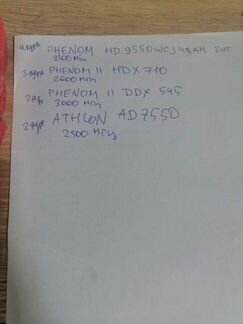 4 ядра PHENOM HD9550WCJ4BGH 2шт
2200 мгц
3 ядра PHENOM II HDX710
2600 мгц
2 яд PHENOM II DDX 545
3000 мгц
2 ядра ATHLON AD7550
2500 мгц